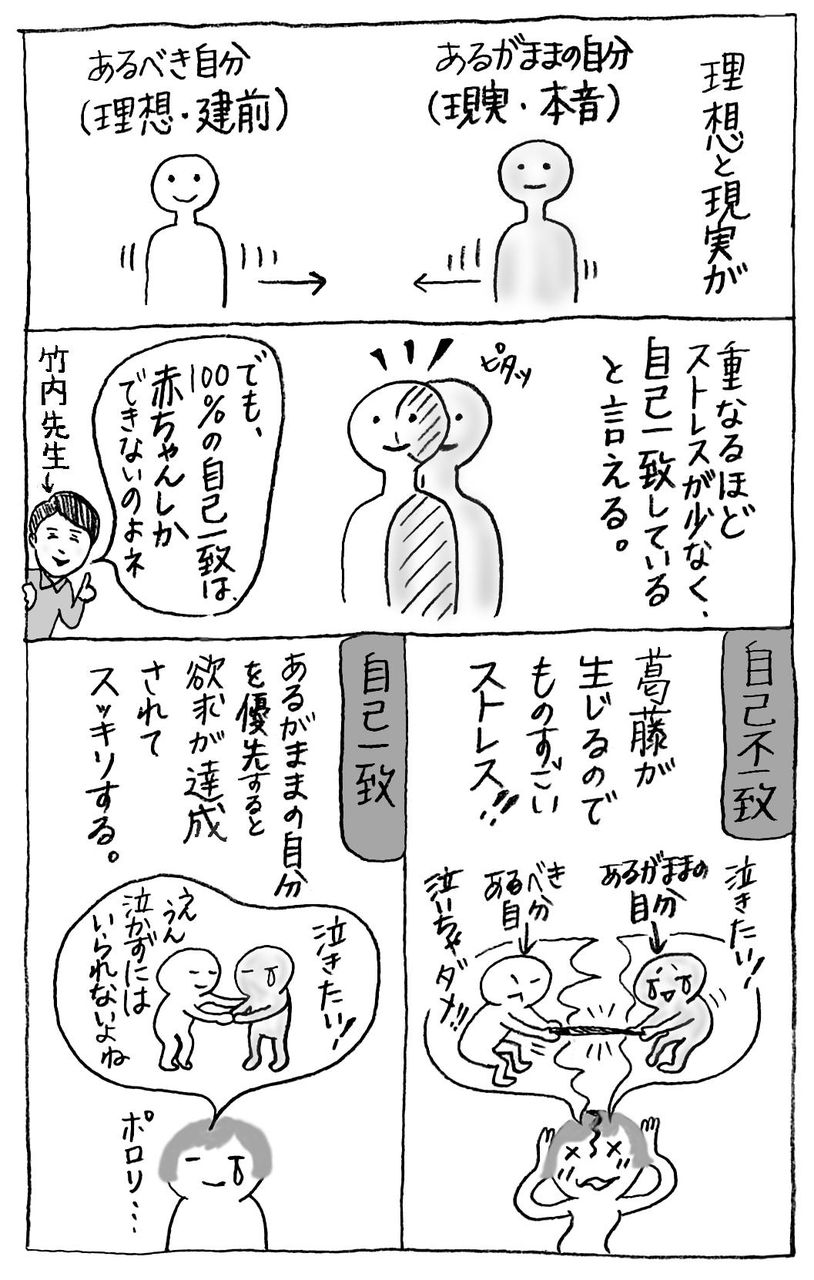 理想と現実が
あるがままの自分
(現実・本音)
あるべき自分
(理想・建前)
重なるほど
ストレスが少なく、
自己一致している
と言える。
ピタッ
でも、
100%の自己一致は、
赤ちゃんしか
できないのよネ
竹内先生
自己不一致
葛藤が
生じるので
ものすごい
ストレス!!
泣きたい!
あるがままの
自分
あるべき
自分
泣いちゃダメ!!
自己一致
あるがままの自分
を優先すると
欲求が達成
されて
スッキリする。
泣きたい!!
うんうん
泣かずには
いられないよね
ポロリ…